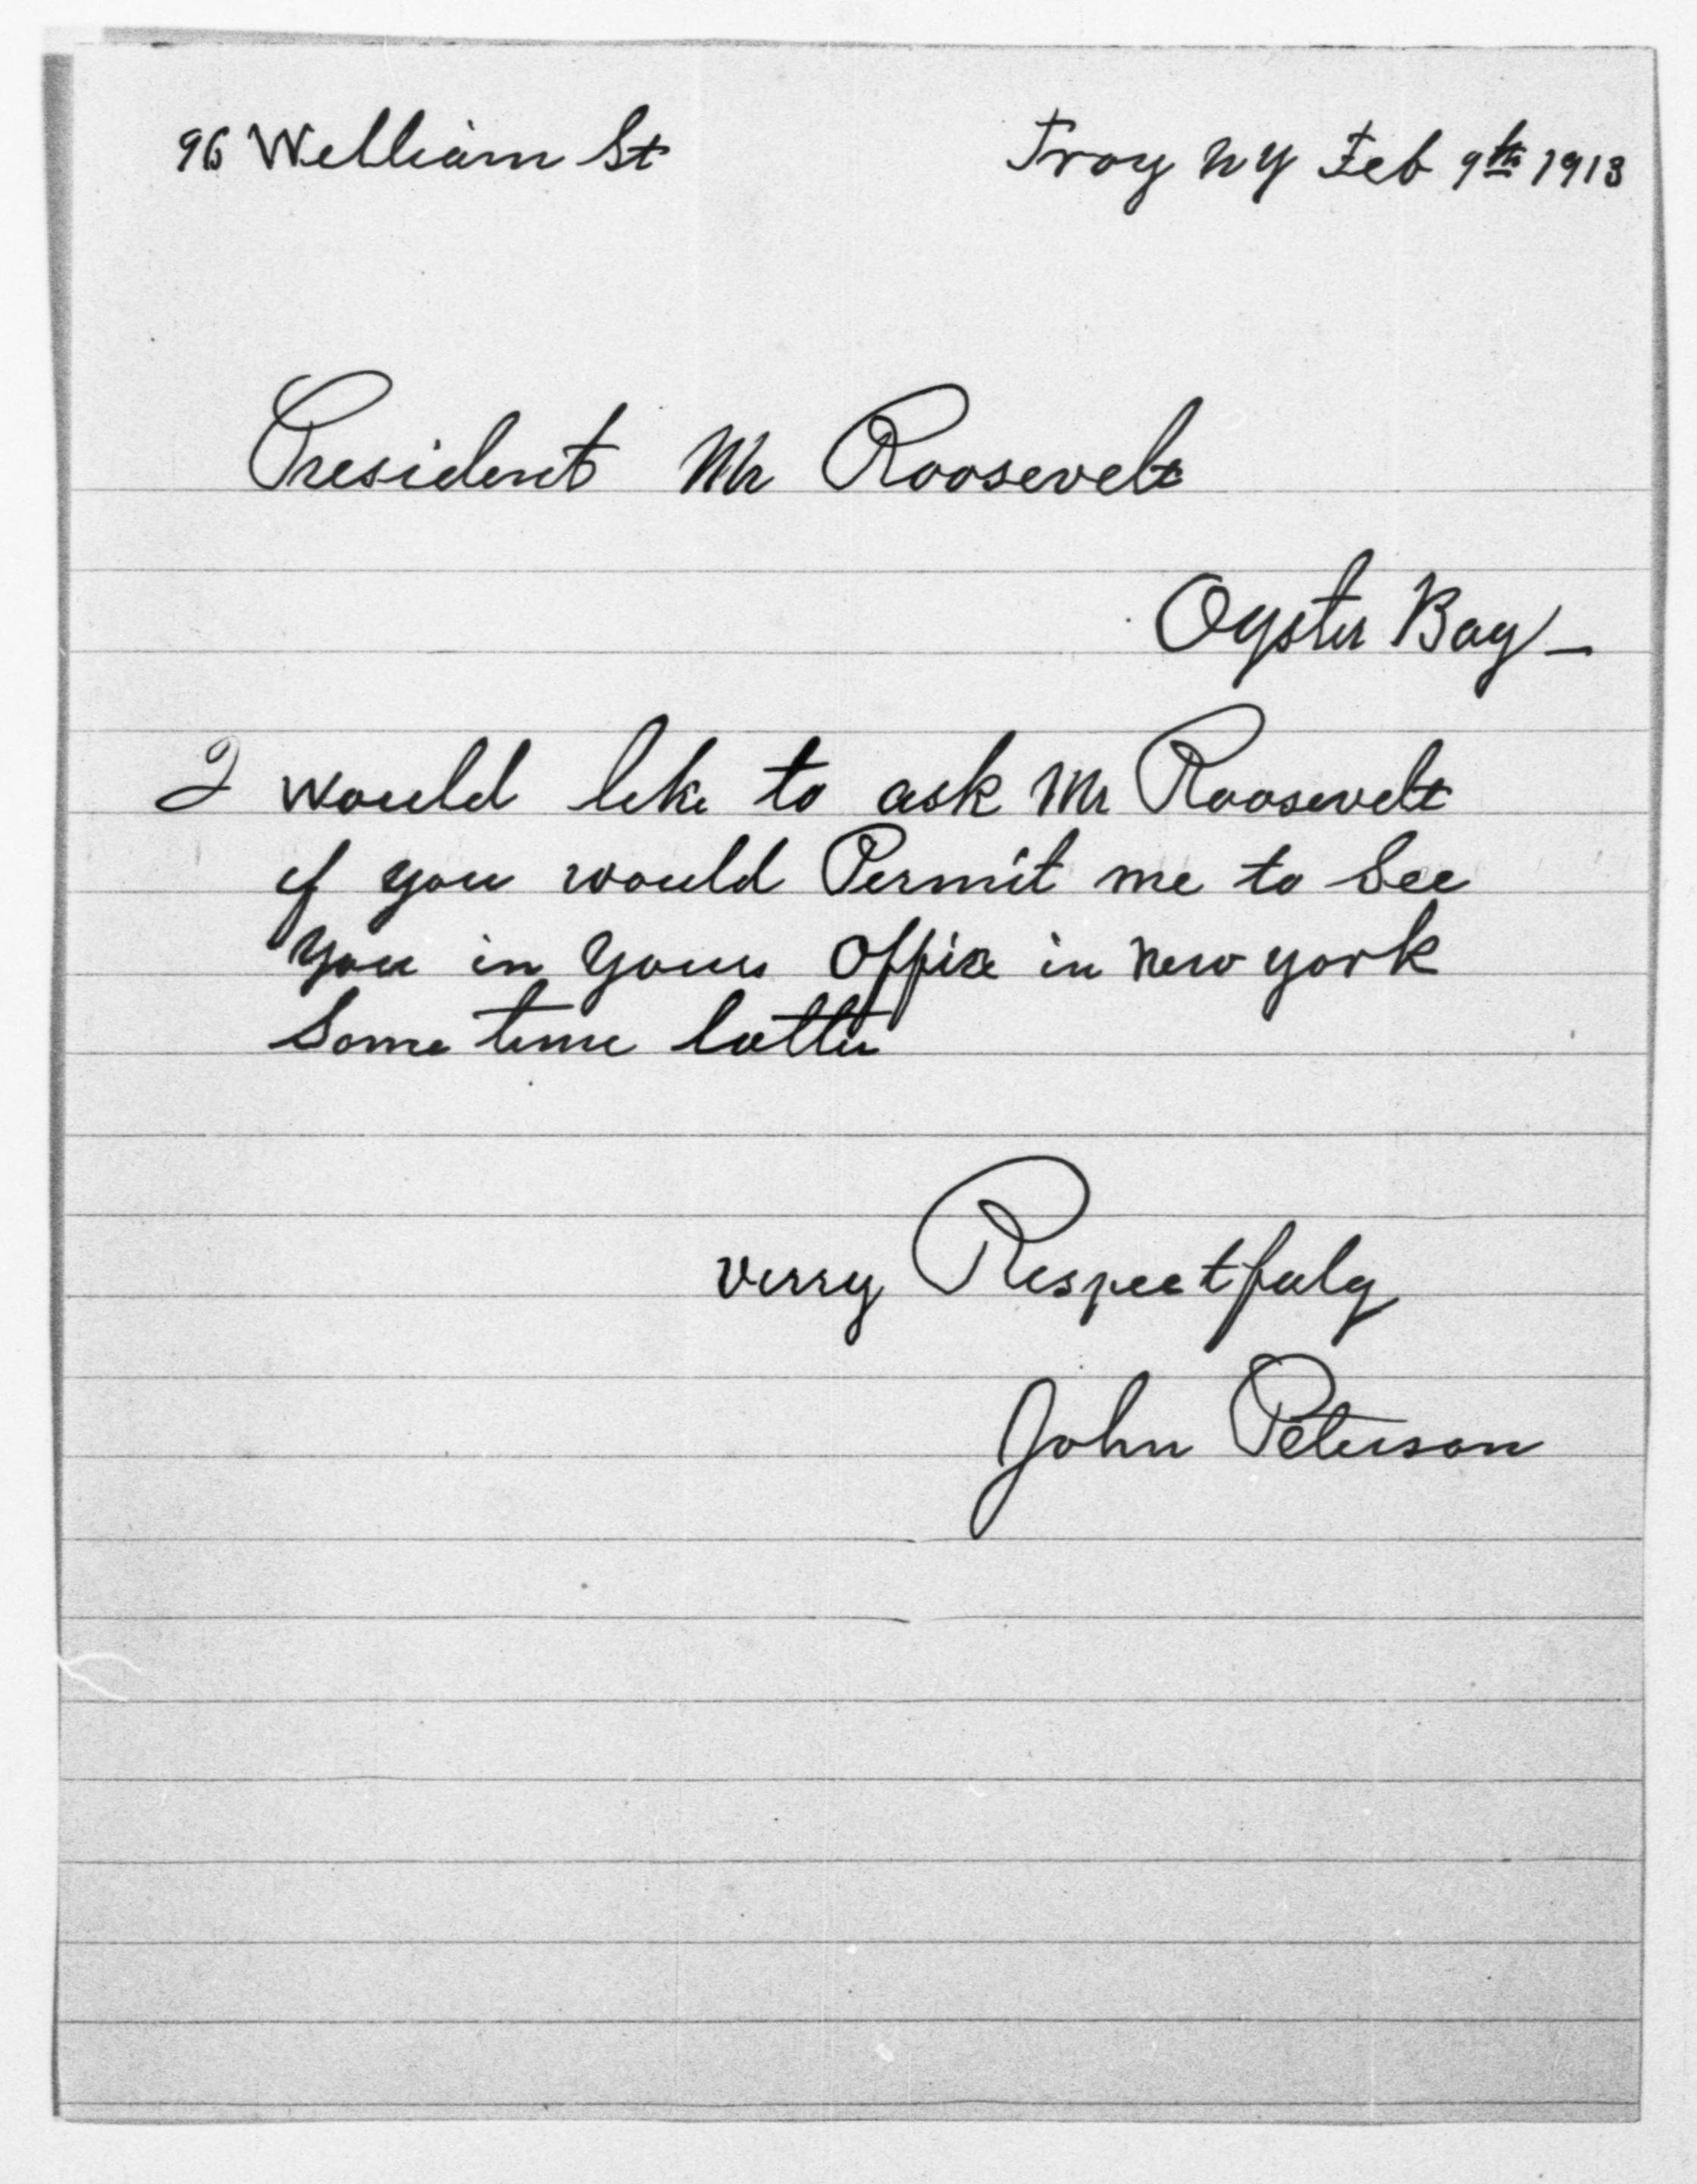 96 William St Troy NY Feb 9th 1913
President Mr Roosevelt
Oyster Bay -
I would like to ask Mr Roosevelt
if you would Permit me to See
you in yours Office in new york
Some time latter
verry Respectfuly
John Peterson